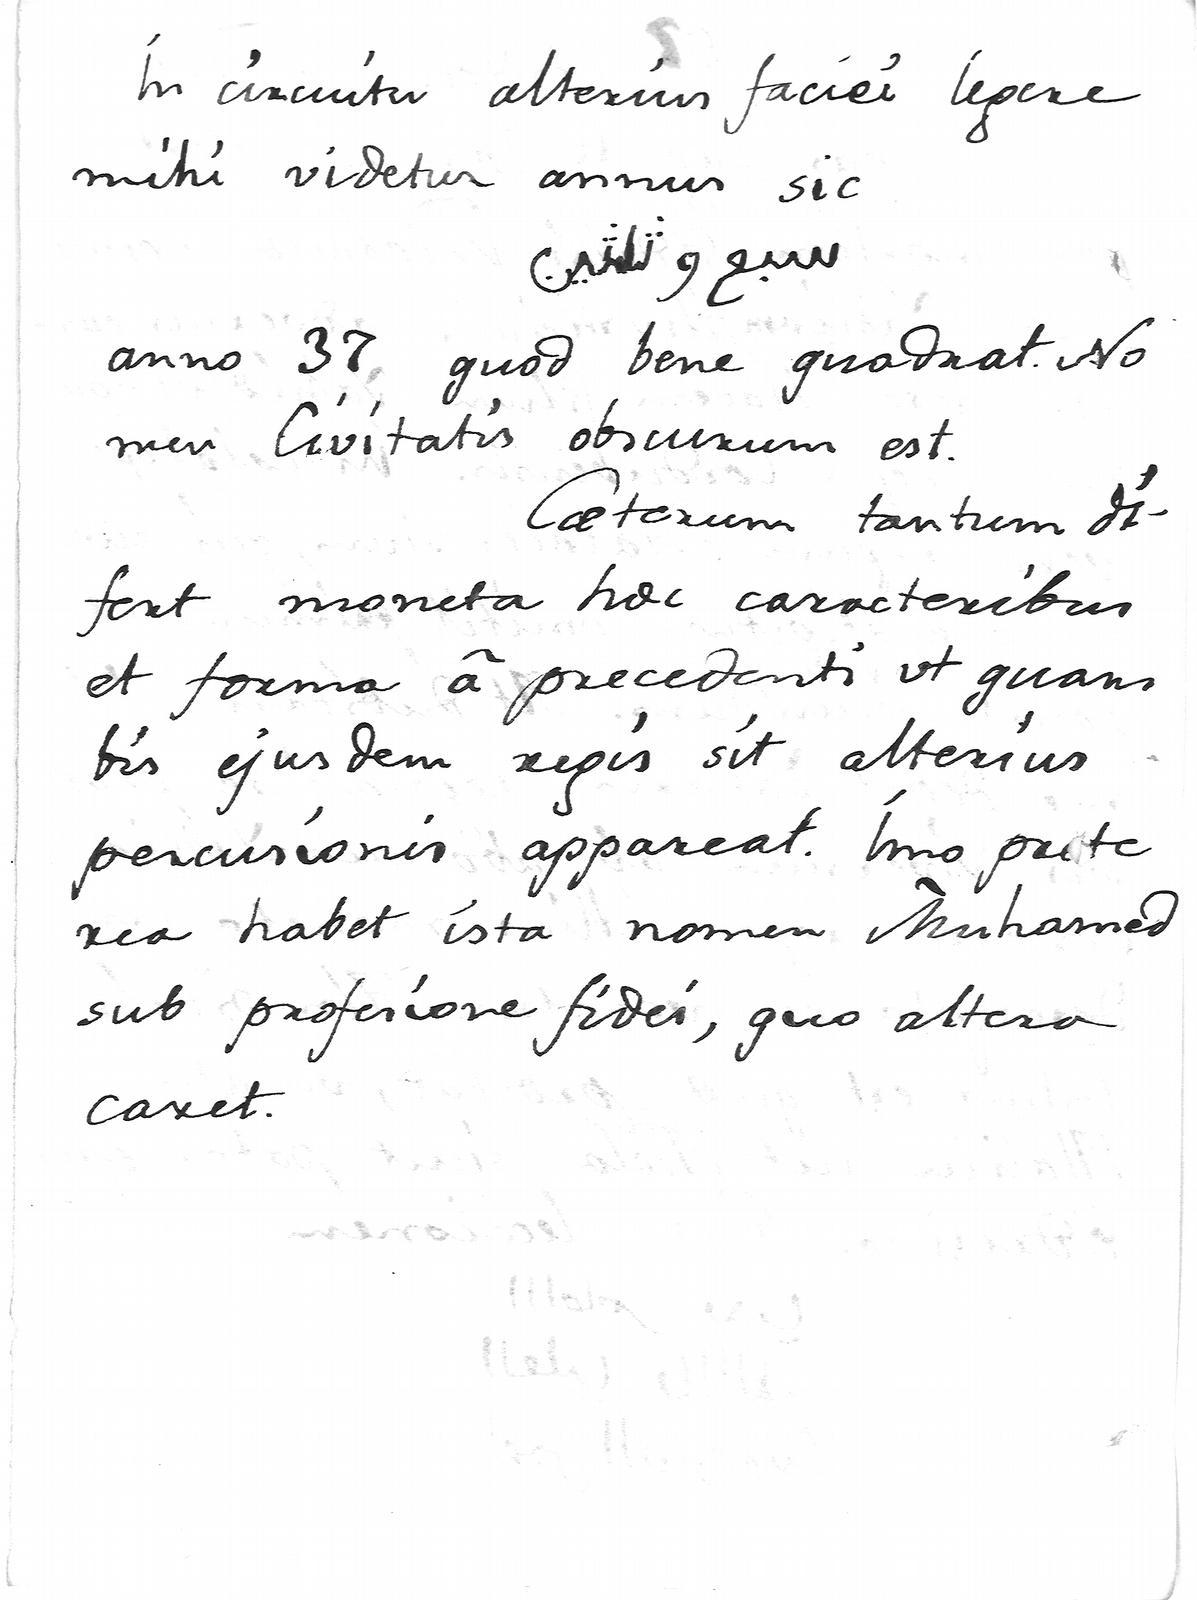 In circuitu alterius faciei legere
mihi videtur annus sic
سبع و ثلثين
anno 37 quod bene quadrat. No
men Civitatis obscurum est.
Cæterum tantum di-
fert moneta hæc caracteribus
et forma ã precedenti vt quam
bis ejusdem regis sit alterius
percusionis appareat. Imo prete
rea habet ista nomen Muhamed
sub profesione fidei, quo altera
caret.